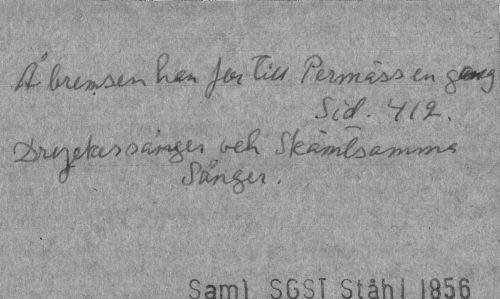 Å bremsen han for till Permäss en gang
Sid. 412.
Dryckessånger och Skämtsamma
Sånger.
Saml SGS1 Ståhl 1856